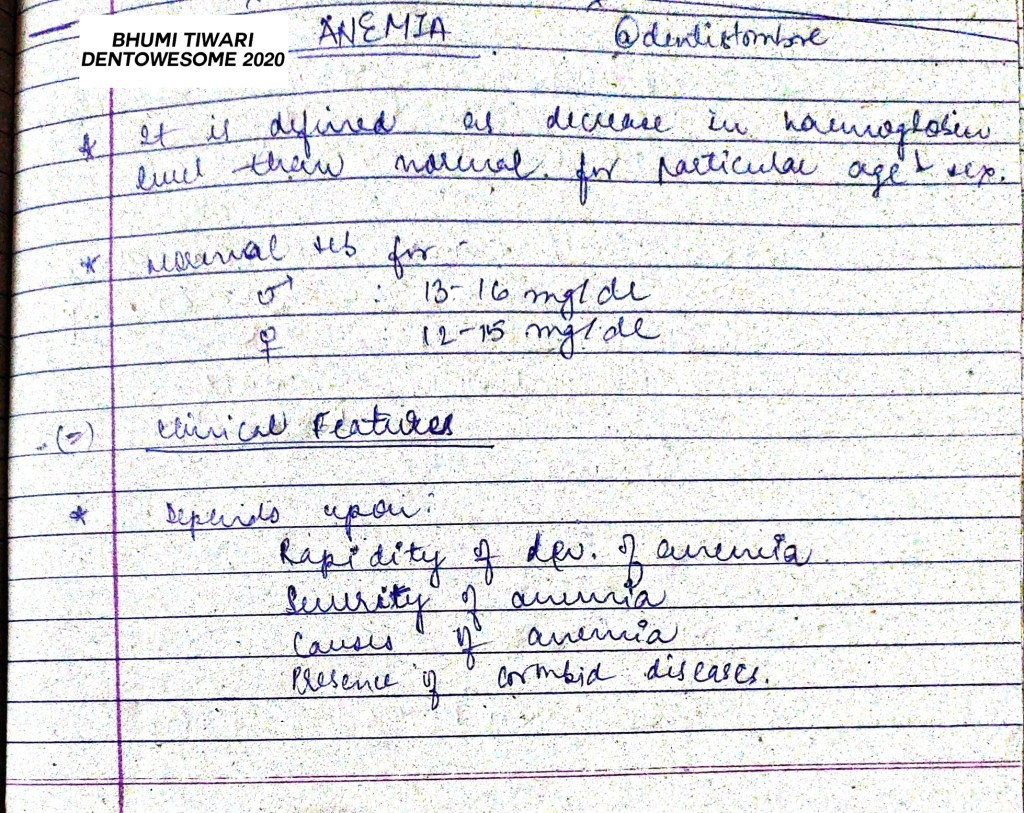 BHUMI TIWARI
DENTOWESOME 2020
ANEMIA
@dentistombre
* It is defined as decrease in haemoglobin
level than normal for particular age & sex.
* Normal Hb for -
♂ : 13-16 mg/dl
♀ 12-15 mg/dl
(=) Clinical Features
* Depends upon:
Rapidity of dev. of anemia
Severity of anemia
Causes of anemia
Presence of cormbid diseases.